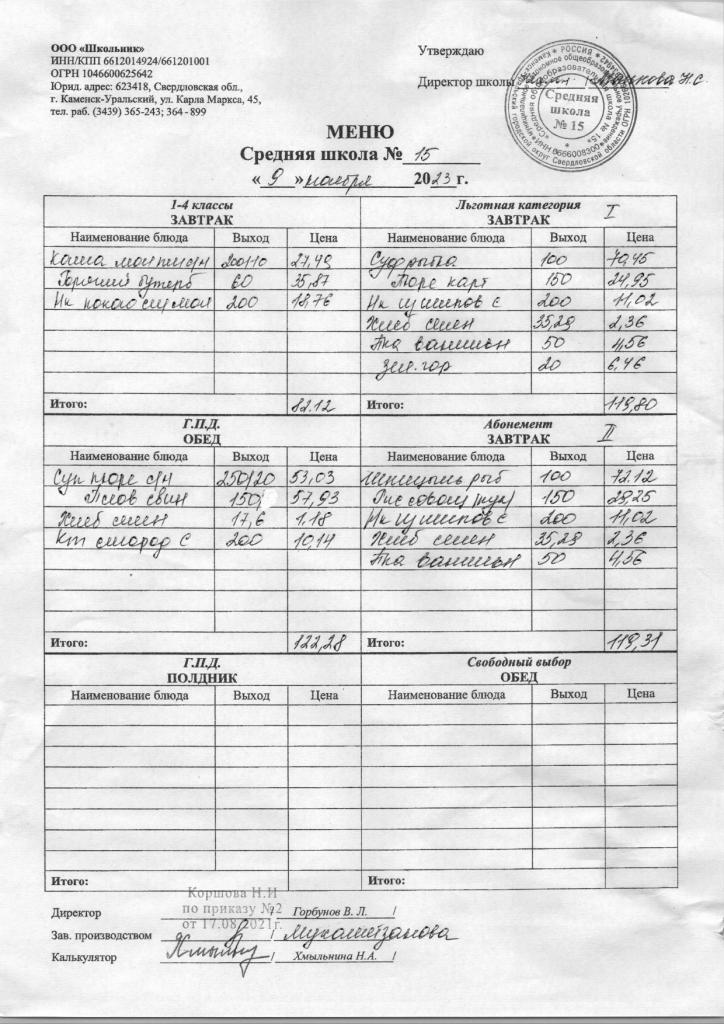 ООО «Школьник»
ИНН/КПП 6612014924/661201001
ОГРН 1046600625642
Юрид. адрес: 623418, Свердловская обл.,
г. Каменск-Уральский, ул. Карла Маркса, 45,
тел. раб. (3439) 365-243; 364 - 899
Утверждаю
Директор школы
Средняя
школа
№ 15
МЕНЮ
Средняя школа № 15
« 9 » ноября 2023г.
1-4 классы
ЗАВТРАК
Наименование блюда Выход Цена
Каша 200/10 27,49
Горячий бутерб 60 35,87
Нк какао 200 18,76
Итого: 82.12
Льготная категория I
ЗАВТРАК
Наименование блюда Выход Цена
Суфрыба 100 70,45
Пюре карт 150 24,95
Нк шиповс 200 11,02
Хлеб 35,28 2,36
Пка 50 4,56
зел.гор 20 6,46
Итого: 119,80
Г.П.Д.
ОБЕД
Наименование блюда Выход Цена
Суп пюре 250/20 53,03
Плов свин 150 57,93
Хлеб 17,6 1.18
Кмп смород с 200 10,14
Итого: 122,28
Абонемент II
ЗАВТРАК
Наименование блюда Выход Цена
рыб 100 72.12
Рис 150 29,25
Нк шиповс 200 11,02
Хлеб 35,28 2,36
Пка 50 4,56
Итого: 119,31
Г.П.Д.
ПОЛДНИК
Наименование блюда Выход Цена
Итого:
Свободный выбор
ОБЕД
Наименование блюда Выход Цена
Итого:
Коршова Н.И
по приказу №2
от 17.08.2021г.
Директор / Горбунов В. Л. /
Зав. производством /
Калькулятор / Хмыльнина Н.А. /